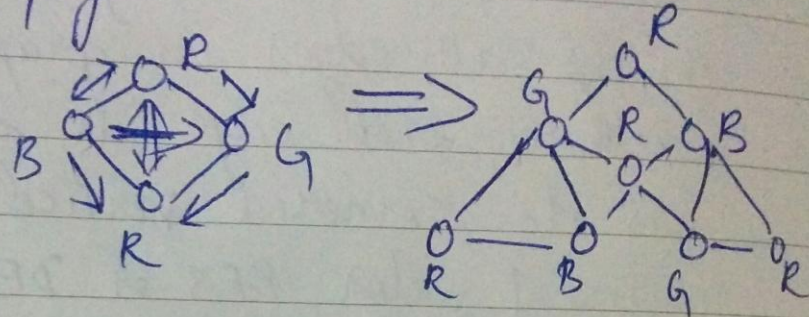 R
B G
R
⇒
R
G R B
R B G R